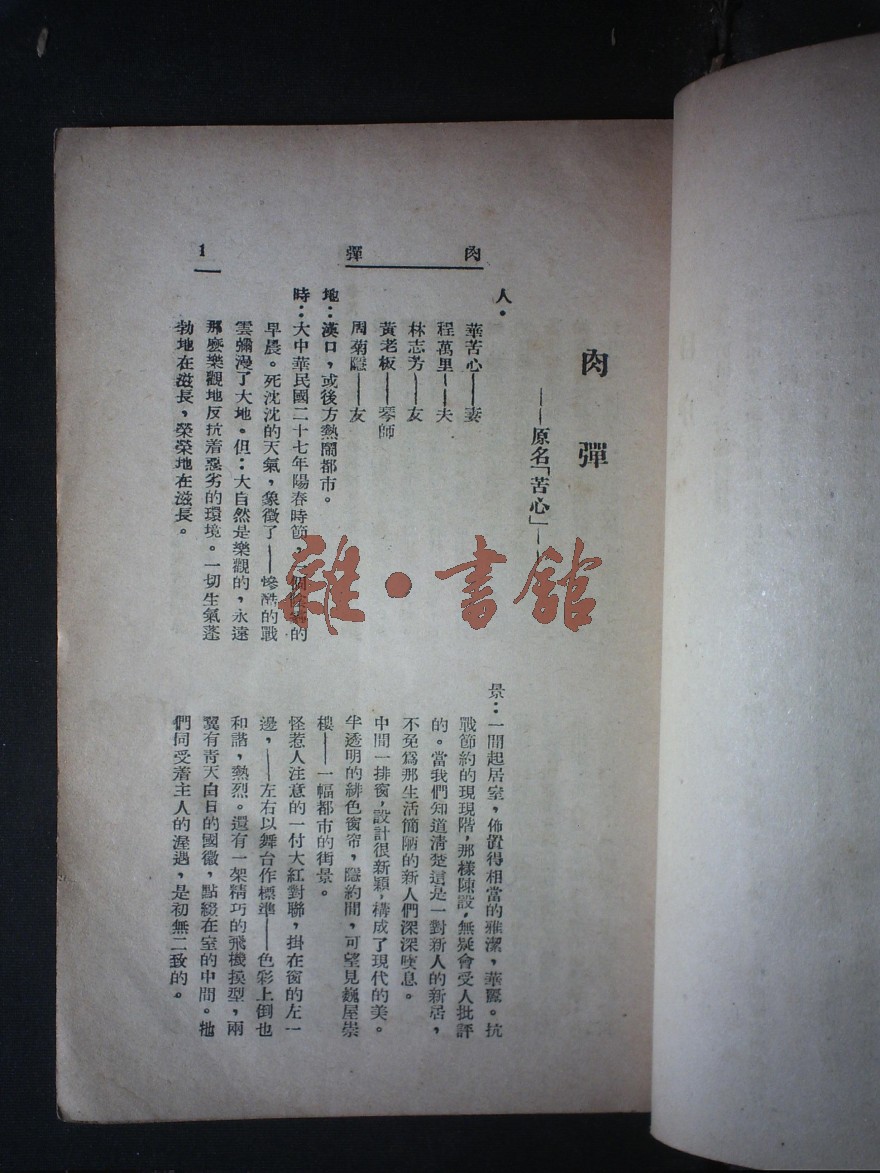 肉彈
1
肉彈
——原名「苦心」——
人．
華苦心——妻
程萬里——夫
林志芳——友
黃老板——琴師
周菊隱——友
地：漢口，或後方熱鬧都市。
時：大中華民國二十七年陽春時節，一個 的
早晨。死沈沈的天氣，象徵了——慘酷的戰
雲彌漫了大地。但：大自然是樂觀的，永遠
那麼樂觀地反抗着惡劣的環境。一切生氣蓬
勃地在滋長，榮榮地在滋長。
景：一間起居室，佈置得相當的雅潔，華麗。抗
戰節約的現現階，那樣陳設，無疑會受人批評
的。當我們知道清楚這是一對新人的新居，
不免爲那生活簡陋的新人們深深嘆息。
中間一排窗，設計很新穎，構成了現代的美。
半透明的緋色窗帘，隱約間，可望見巍屋崇
樓——一幅都市的街景。
怪惹人注意的一付大紅對聯，掛在窗的左一
邊，——左右以舞台作標準——色彩上倒也
和諧，熱烈。還有一架精巧的飛機模型，兩
翼有青天白日的國徽，點綴在室的中間。牠
們同受着主人的渥遇，是初無二致的。
雜·書館